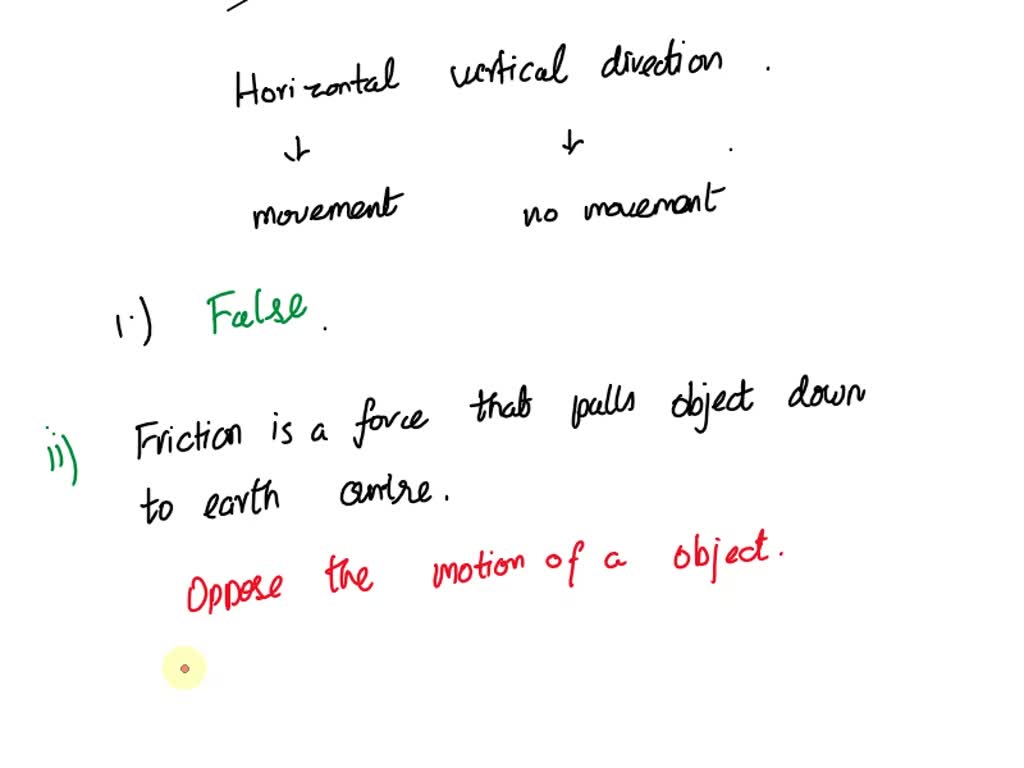 Horizontal vertical direction .
movement no movement
i.) False .
ii) Friction is a force that pulls object down
to earth centre .
Oppose the motion of a object .